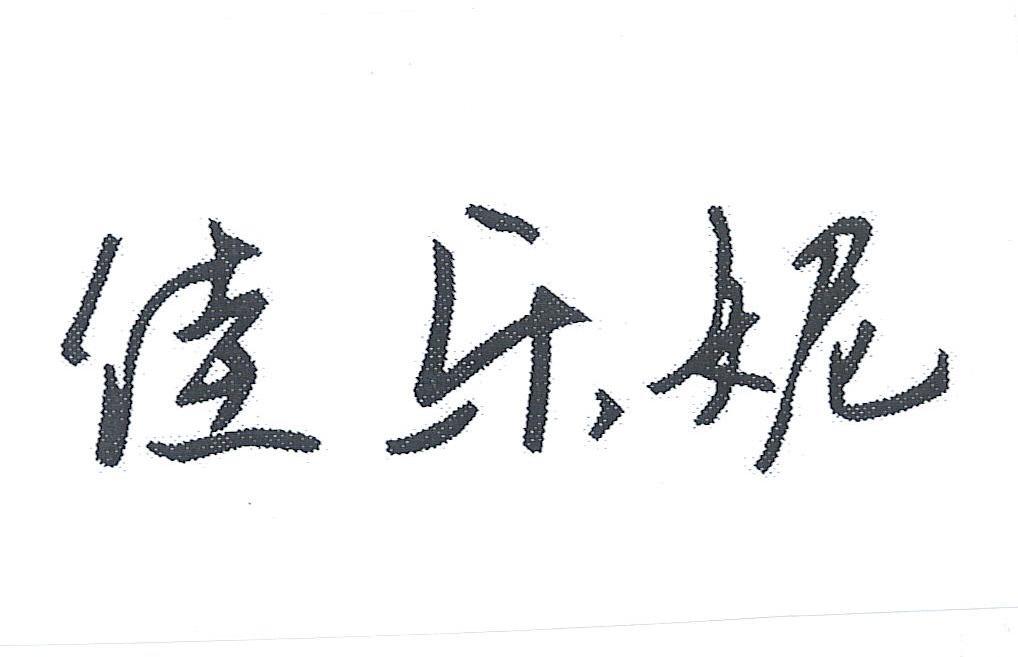 佳乐妮